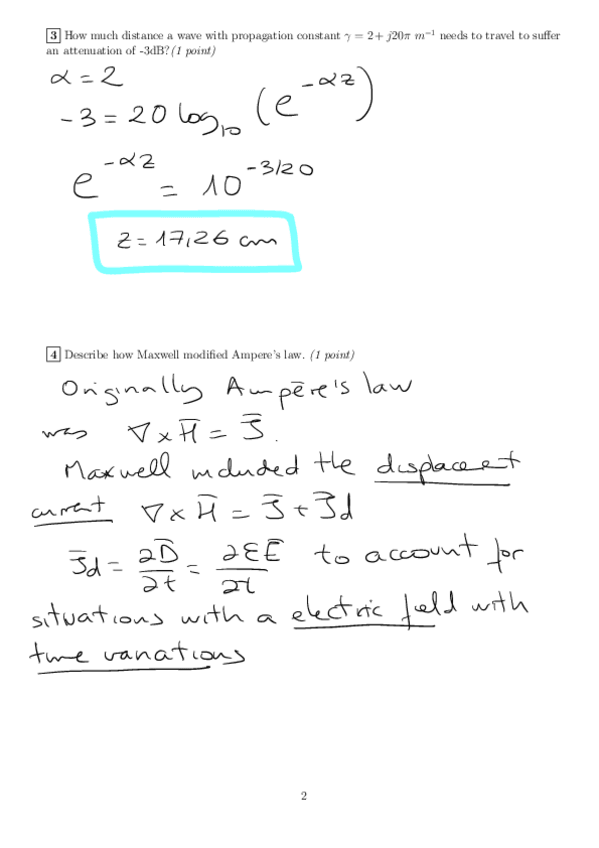 3 How much distance a wave with propagation constant γ = 2 + j20π m⁻¹ needs to travel to suffer
an attenuation of -3dB? (1 point)
α = 2
-3 = 20 log₁₀ (e^{-αz})
e^{-αz} = 10^{-3/20}
z = 17,26 cm
4 Describe how Maxwell modified Ampere's law. (1 point)
Originally Ampēre's law
was ∇ × H̄ = J̄.
Maxwell included the displacent
current ∇ × H̄ = J̄ + J̄d
J̄d = ∂D̄/∂t = ∂εĒ/∂t to account for
situations with a electric field with
time variations
2